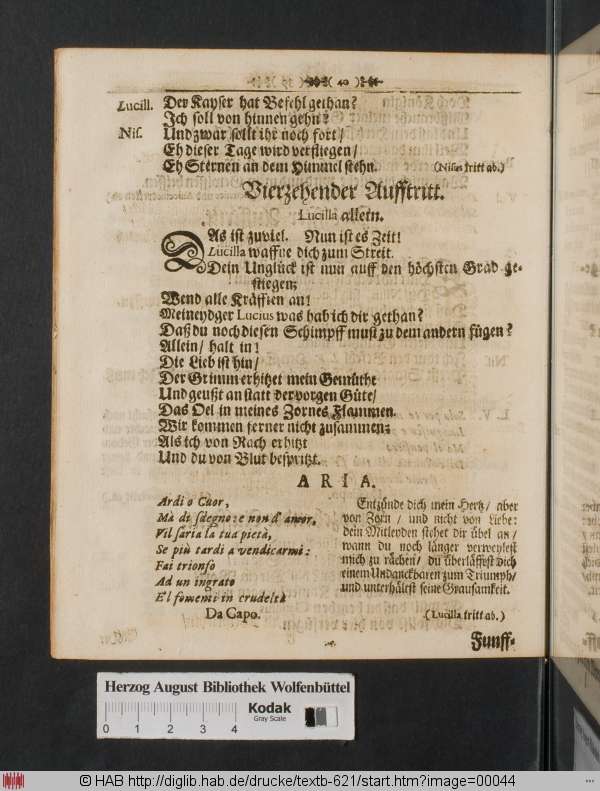 ( 40 )
Lucill. Der Kayser hat Befehl gethan?
Ich soll von hinnen gehn?
Nis. Und zwar sollt ihr noch fort/
Eh dieser Tage wird verfliegen/
Eh Sternen an dem Himmel stehn. (Nisus tritt ab.)
Vierzehender Aufftritt.
Lucilla allein.
DAs ist zuviel. Nun ist es Zeit!
Lucilla waffne dich zum Streit.
Dein Unglück ist nun auff den höchsten Grad ge-
stiegen;
Wend alle Kräfften an!
Meineydger Lucius was hab ich dir gethan?
Daß du noch diesen Schimpff must zu dem andern fügen?
Allein/ halt in!
Die Lieb ist hin/
Der Grimm erhitzet mein Gemüthe
Und geußt an statt der vorgen Güte/
Das Oel in meines Zornes Flammen.
Wir kommen ferner nicht zusammen:
Als ich von Rach erhitzt
Und du von Blut bespritzt.
ARIA.
Ardi o Cuor,
Mà di sdegno: e non d' amor,
Vil saria la tua pietà,
Se più tardi a vendicarmi:
Fai trionfo
Ad un ingrato
E l fomenti in crudeltà
Da Capo.
Entzünde dich mein Hertz/ aber
von Zorn/ und nicht von Liebe:
dein Mitleyden stehet dir übel an/
wann du noch länger verweylest
mich zu rächen/ du überläffest dich
einem Undanckbaren zum Triumph/
und unterhälst seine Grausamkeit.
(Lucilla tritt ab.)
Funff-
Herzog August Bibliothek Wolfenbüttel
Kodak
Gray Scale
0 1 2 3 4
© HAB http://diglib.hab.de/drucke/textb-621/start.htm?image=00044